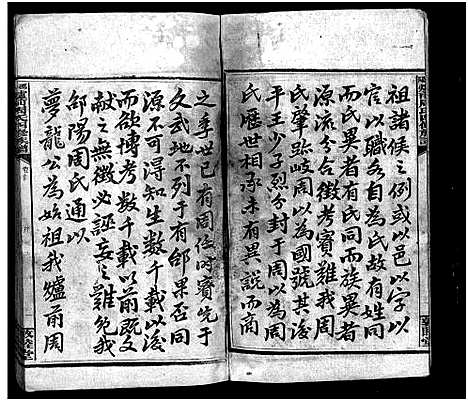 祖諸侯之例或以邑以字以
官以職各自為氏故有姓同
而氏異者有氏同而族異者
源流分合徵考實難我周
氏肇跡岐周以為國號其後
平王少子烈分封于周以為周
氏歷世相承未有異説而商
之季世已有周任時實先于
文武地不列于有邰果否同
源不可得知生數千載以後
而欲博考數千載以前既文
獻之無徵必誣妄之難免我
邵陽周氏通以
夢龍公為始祖我爐前周